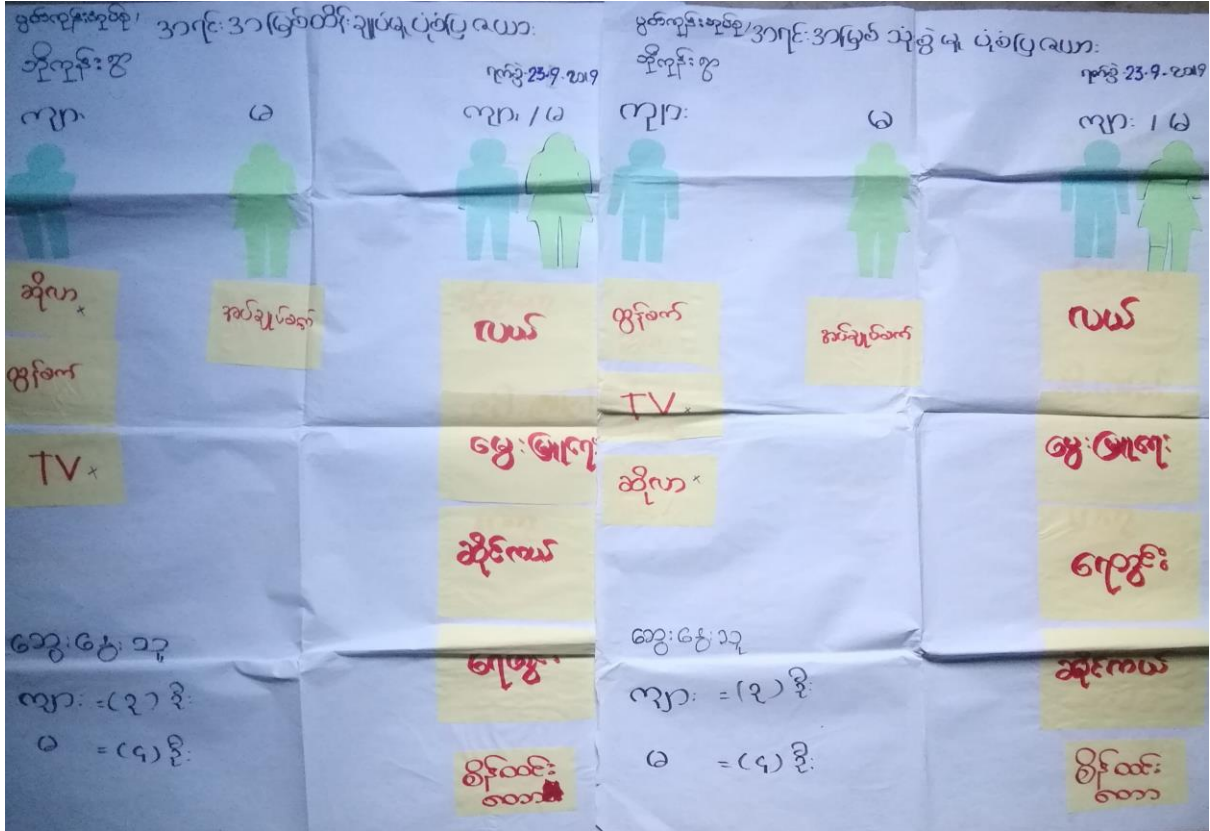 မွတ်ကုန်းအုပ်စု၊ အရင်းအမြစ်ထိန်းချုပ်မှု ပုံစံပြ ဇယား
ဘိုကုန်းရွာ
ရက်စွဲ 23-9-2019
ကျား မ ကျား / မ
ဆိုလာ ×
အပ်ချုပ်စက်
လယ်
ထွန်စက်
TV ×
မွေးမြူရေး
ဆိုင်ကယ်
ရေတွင်း
စိန်ထင်း
တော
ဆွေးနွေးသူ
ကျား = (၃) ဦး
မ = (၄) ဦး
မွတ်ကုန်းအုပ်စု၊ အရင်းအမြစ် သုံးစွဲမှု ပုံစံပြ ဇယား
ဘိုကုန်းရွာ
ရက်စွဲ 23-9-2019
ကျား မ ကျား / မ
ထွန်စက်
အပ်ချုပ်စက်
လယ်
TV ×
ဆိုလာ ×
မွေးမြူရေး
ရေတွင်း
ဆိုင်ကယ်
စိန်ထင်း
တော
ဆွေးနွေးသူ
ကျား = (၃) ဦး
မ = (၄) ဦး